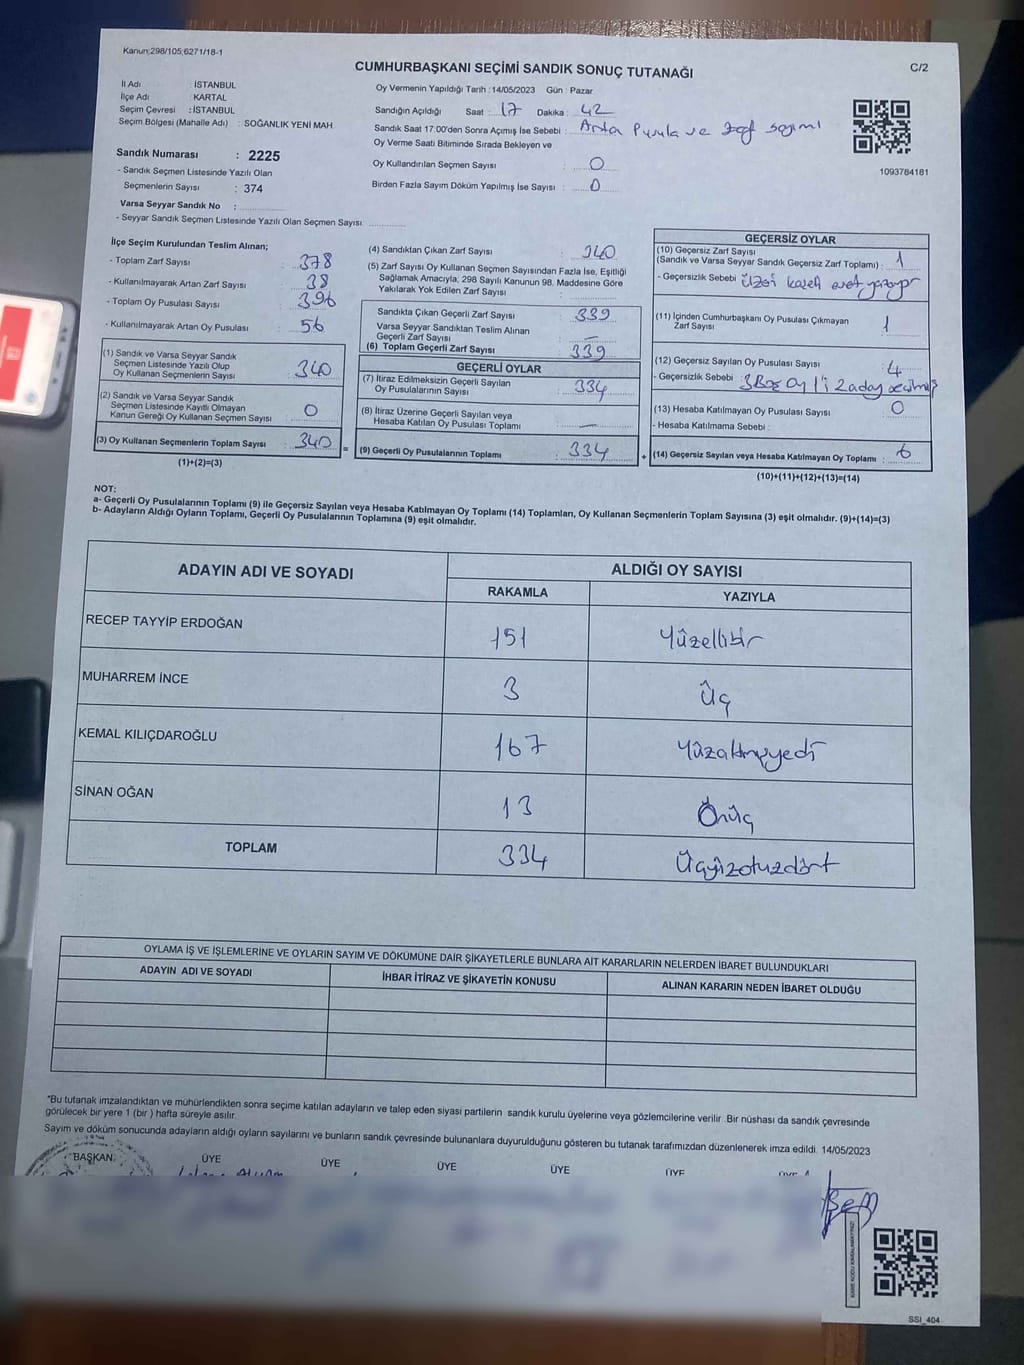 Kanun:298/105;6271/18-1
C/2
CUMHURBAŞKANI SEÇİMİ SANDIK SONUÇ TUTANAĞI
İl Adı : İSTANBUL
İlçe Adı : KARTAL
Seçim Çevresi : İSTANBUL
Seçim Bölgesi (Mahalle Adı) : SOĞANLIK YENİ MAH.
Sandık Numarası : 2225
- Sandık Seçmen Listesinde Yazılı Olan
Seçmenlerin Sayısı : 374
Varsa Seyyar Sandık No :
- Seyyar Sandık Seçmen Listesinde Yazılı Olan Seçmen Sayısı:
Oy Vermenin Yapıldığı Tarih : 14/05/2023 Gün : Pazar
Sandığın Açıldığı Saat : 17 Dakika : 42
Sandık Saat 17:00'den Sonra Açımış İse Sebebi : Artan Pusula ve Zarf sayımı
Oy Verme Saati Bitiminde Sırada Bekleyen ve
Oy Kullandırılan Seçmen Sayısı : 0
Birden Fazla Sayım Döküm Yapılmış İse Sayısı : 0
1093784181
İlçe Seçim Kurulundan Teslim Alınan;
- Toplam Zarf Sayısı : 378
- Kullanılmayarak Artan Zarf Sayısı : 38
- Toplam Oy Pusulası Sayısı : 396
- Kullanılmayarak Artan Oy Pusulası : 56
(1) Sandık ve Varsa Seyyar Sandık
Seçmen Listesinde Yazılı Olup
Oy Kullanan Seçmenlerin Sayısı : 340
(2) Sandık ve Varsa Seyyar Sandık
Seçmen Listesinde Kayıtlı Olmayan
Kanun Gereği Oy Kullanan Seçmen Sayısı : 0
(3) Oy Kullanan Seçmenlerin Toplam Sayısı : 340 =
(1)+(2)=(3)
(4) Sandıktan Çıkan Zarf Sayısı : 340
(5) Zarf Sayısı Oy Kullanan Seçmen Sayısından Fazla İse, Eşitliği
Sağlamak Amacıyla, 298 Sayılı Kanunun 98. Maddesine Göre
Yakılarak Yok Edilen Zarf Sayısı :
Sandıkta Çıkan Geçerli Zarf Sayısı : 339
Varsa Seyyar Sandıktan Teslim Alınan
Geçerli Zarf Sayısı : —
(6) Toplam Geçerli Zarf Sayısı : 339
GEÇERLİ OYLAR
(7) İtiraz Edilmeksizin Geçerli Sayılan
Oy Pusulalarının Sayısı : 334
(8) İtiraz Üzerine Geçerli Sayılan veya
Hesaba Katılan Oy Pusulası Toplamı : —
(9) Geçerli Oy Pusulalarının Toplamı : 334 +
GEÇERSİZ OYLAR
(10) Geçersiz Zarf Sayısı
(Sandık ve Varsa Seyyar Sandık Geçersiz Zarf Toplamı) : 1
- Geçersizlik Sebebi : Üzeri kaşeli evet yazıyor
(11) İçinden Cumhurbaşkanı Oy Pusulası Çıkmayan
Zarf Sayısı : 1
(12) Geçersiz Sayılan Oy Pusulası Sayısı : 4
- Geçersizlik Sebebi : 3 Boş Oy 1'i 2 aday
(13) Hesaba Katılmayan Oy Pusulası Sayısı : 0
- Hesaba Katılmama Sebebi :
(14) Geçersiz Sayılan veya Hesaba Katılmayan Oy Toplamı : 6
(10)+(11)+(12)+(13)=(14)
NOT:
a- Geçerli Oy Pusulalarının Toplamı (9) ile Geçersiz Sayılan veya Hesaba Katılmayan Oy Toplamı (14) Toplamları, Oy Kullanan Seçmenlerin Toplam Sayısına (3) eşit olmalıdır. (9)+(14)=(3)
b- Adayların Aldığı Oyların Toplamı, Geçerli Oy Pusulalarının Toplamına (9) eşit olmalıdır.
ADAYIN ADI VE SOYADI ALDIĞI OY SAYISI
RAKAMLA YAZIYLA
RECEP TAYYİP ERDOĞAN 151 Yüzellibir
MUHARREM İNCE 3 Üç
KEMAL KILIÇDAROĞLU 167 Yüzaltmışyedi
SİNAN OĞAN 13 Onüç
TOPLAM 334 Üçyüzotuzdört
OYLAMA İŞ VE İŞLEMLERİNE VE OYLARIN SAYIM VE DÖKÜMÜNE DAİR ŞİKAYETLERLE BUNLARA AİT KARARLARIN NELERDEN İBARET BULUNDUKLARI
ADAYIN ADI VE SOYADI İHBAR İTİRAZ VE ŞİKAYETİN KONUSU ALINAN KARARIN NEDEN İBARET OLDUĞU
*Bu tutanak imzalandıktan ve mühürlendikten sonra seçime katılan adayların ve talep eden siyasi partilerin sandık kurulu üyelerine veya gözlemcilerine verilir. Bir nüshası da sandık çevresinde
görülecek bir yere 1 (bir) hafta süreyle asılır.
Sayım ve döküm sonucunda adayların aldığı oyların sayılarını ve bunların sandık çevresinde bulunanlara duyurulduğunu gösteren bu tutanak tarafımızdan düzenlenerek imza edildi. 14/05/2023
BAŞKAN ÜYE ÜYE ÜYE ÜYE ÜYE
SSİ_404